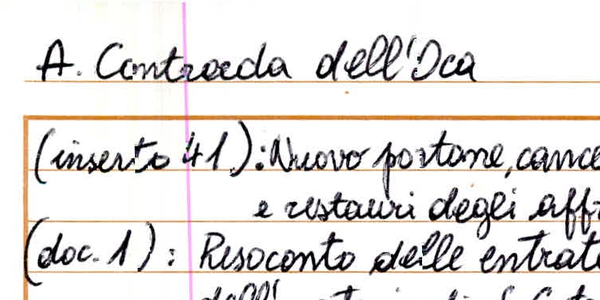 A. Contrada dell'Oca
(inserto 41): Nuovo portone, cance
e restauri degli aff
(doc. 1): Resoconto delle entrat